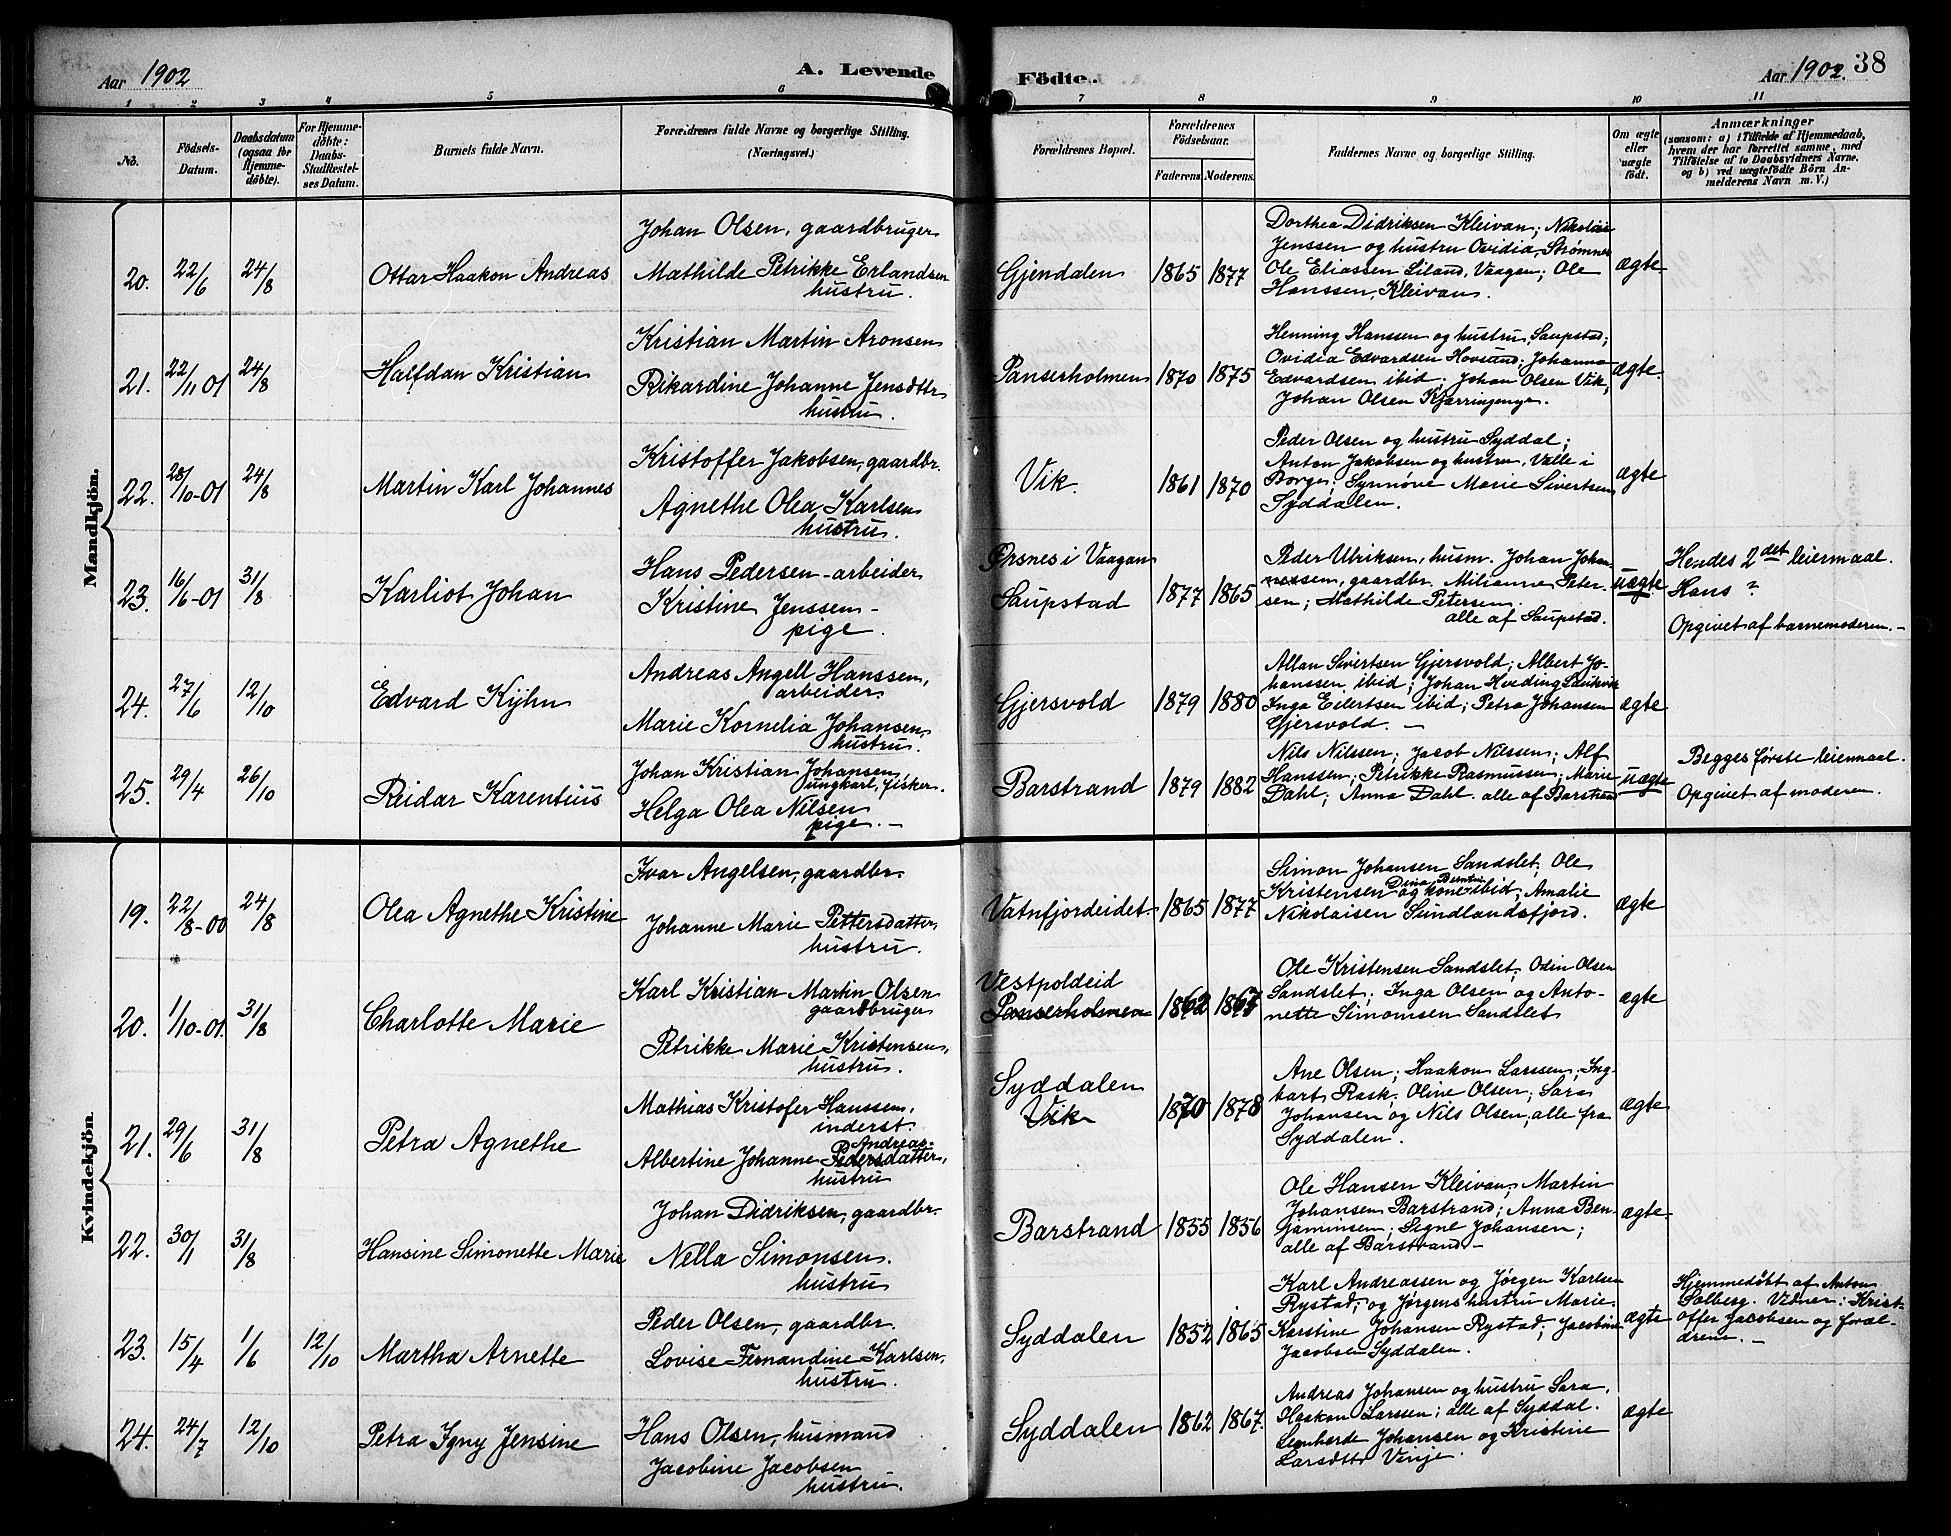 Aar 1902
A. Levende
Födte.
Aar 1902.
38
1 2 3 4 5 6 7 8 9 10 11
No.
Födsels-
Datum.
Daabsdatum
(ogsaa for
Hjemme-
döbte).
For Hjemme-
döbte:
Daabs-
Stadfæstel-
ses Datum.
Barnets fulde Navn.
Forældrenes fulde Navne og borgerlige Stilling.
(Næringsvei.)
Forældrenes Bopæl.
Forældrenes
Födselsaar.
Faderens. Moderens.
Faddernes Navne og borgerlige Stilling.
Om ægte
eller
uægte
födt.
Anmærkninger
(saasom: a) i Tilfælde af Hjemmedaab,
hvem der har forrettet samme, med
Tilföielse af to Daabsvidners Navne,
og b) ved uægtefödte Börn An-
melderens Navn m. V.)
Mandkjön.
20. 22/6 24/8 Ottar Haakon Andreas
Johan Olsen, gaardbruger
Mathilde Petrikke Erlandsen
hustru.
Gjendalen 1865 1877
Dorthea Didriksen Kleivan; Nikolai
Jenssen og hustru Ovidia, Strømnes
Ole Eliassen Liland, Vaagan; Ole
Hanssen, Kleivan.
ægte
21. 22/11 01 24/8 Halfdan Kristian
Kristian Martin Aronsen
Rikardine Johanne Jensdtter
hustru.
Panserholmen 1870 1875
Henning Hanssen og hustru Saupstad;
Ovidia Edvardsen Hovsund; Johanna
Edvardsen ibid; Johan Olsen Vik;
Johan Olsen Kjærringenge.
ægte.
22. 28/10-01 24/8 Martin Karl Johannes
Kristoffer Jakobsen, gaardbr.
Agnethe Olea Karlsen
hustru.
Vik. 1861 1870
Peder Olsen og hustru Syddal;
Anton Jakobsen og hustru, Valle i
Borge; Synnøve Marie Sivertsen
Syddalen.
ægte
23. 16/6-01 31/8 Karliot Johan
Hans Pedersen - arbeider
Kristine Jenssen -
pige.
Ørsnes i Vaagan
Saupstad 1877 1865
Peder Ulriksen, husm. Johan Johan-
nessen, gaardbr. Milianna Peter-
sen; Mathilde Petersen.
alle af Saupstad.
uægte
Hendes 2det leiermaal.
Hans ?
Opgivet af barnemoderen. -
24. 27/6 12/10 Edvard Kyhn
Andreas Angell Hanssen,
arbeider
Marie Kornelia Johansen,
hustru.
Gjersvold 1879 1880
Allan Sivertsen Gjersvold; Albert Jo-
hanssen ibid; Johan Hveding Laukvik
Inga Eilertsen ibid; Petra Johansen
Gjersvold. -
ægte
25. 29/4 26/10 Reidar Karentius
Johan Kristian Johansen
ungkarl, fisker.
Helga Olea Nilsen
pige. -
Barstrand 1879 1882
Nils Nilssen; Jacob Nilssen; Alf
Hanssen; Petrikke Rasmussen; Marie
Dahl; Anna Dahl. alle af Barstrand
uægte
Begges første leiermaal.
Opgivet af moderen.
Kvindekjön.
19. 22/8-00 24/8 Olea Agnethe Kristine
Ivar Angelsen, gaardbr.
Johanne Marie Pettersdatter,
hustru.
Vatnfjordeidet. 1865 1877
Simon Johansen Sandslet; Ole
Dina Berntin
Kristensen og kone ibid; Amalie
Nikolaisen Sundlandsfjord.
ægte
20. 1/10-01 31/8 Charlotte Marie
Karl Kristian Martin Olsen
gaardbruger
Petrikke Marie Kristensen,
hustru.
Vestpoldeid
Panserholmen 1862 1867
Ole Kristensen Sandslet; Odin Olsen
Sandslet; Inga Olsen og Anto-
nette Simonsen Sandslet
ægte
21. 29/6 31/8 Petra Agnethe
Mathias Kristofer Hanssen,
inderst.
Andreas-
Albertine Johanne Pedersdatter,
hustru
Syddalen
Vik 1870 1878
Ane Olsen; Haakon Larssen; Ing-
bart Rask; Oline Olsen; Sara
Johansen og Nils Olsen, alle fra
Syddalen.
ægte
22. 30/1 31/8 Hansine Simonette Marie
Johan Didriksen, gaardbr.
Nella Simonsen.
hustru
Barstrand 1855 1856
Ole Hansen Kleivan; Martin
Johansen Barstrand; Anna Ben-
jaminsen; Signe Johansen;
alle af Barstrand -
ægte
23. 15/4 1/6 12/10 Martha Arnette
Peder Olsen, gaardbr.
Lovise Fernandine Karlsen,
hustru.
Syddalen 1852 1865
Karl Andreassen og Jørgen Karlsen
Rystad; og Jørgens hustru Marie.
Karstine Johansen Rystad; Jacobine
Jacobsen Syddalen.
ægte
Hjemmedøbt af Anton
Solberg. Vidner: Krist-
offer Jacobsen og foræl-
drene. -
24. 24/7 12/10 Petra Igny Jensine
Hans Olsen, husmand
Jacobine Jacobsen
hustru.
Syddalen 1862 1867.
Andreas Johansen og hustru Sara,
Haakon Larssen; alle af Syddal.
Leonharde Johansen og Kristine
Larsdtter Vinje.
ægte